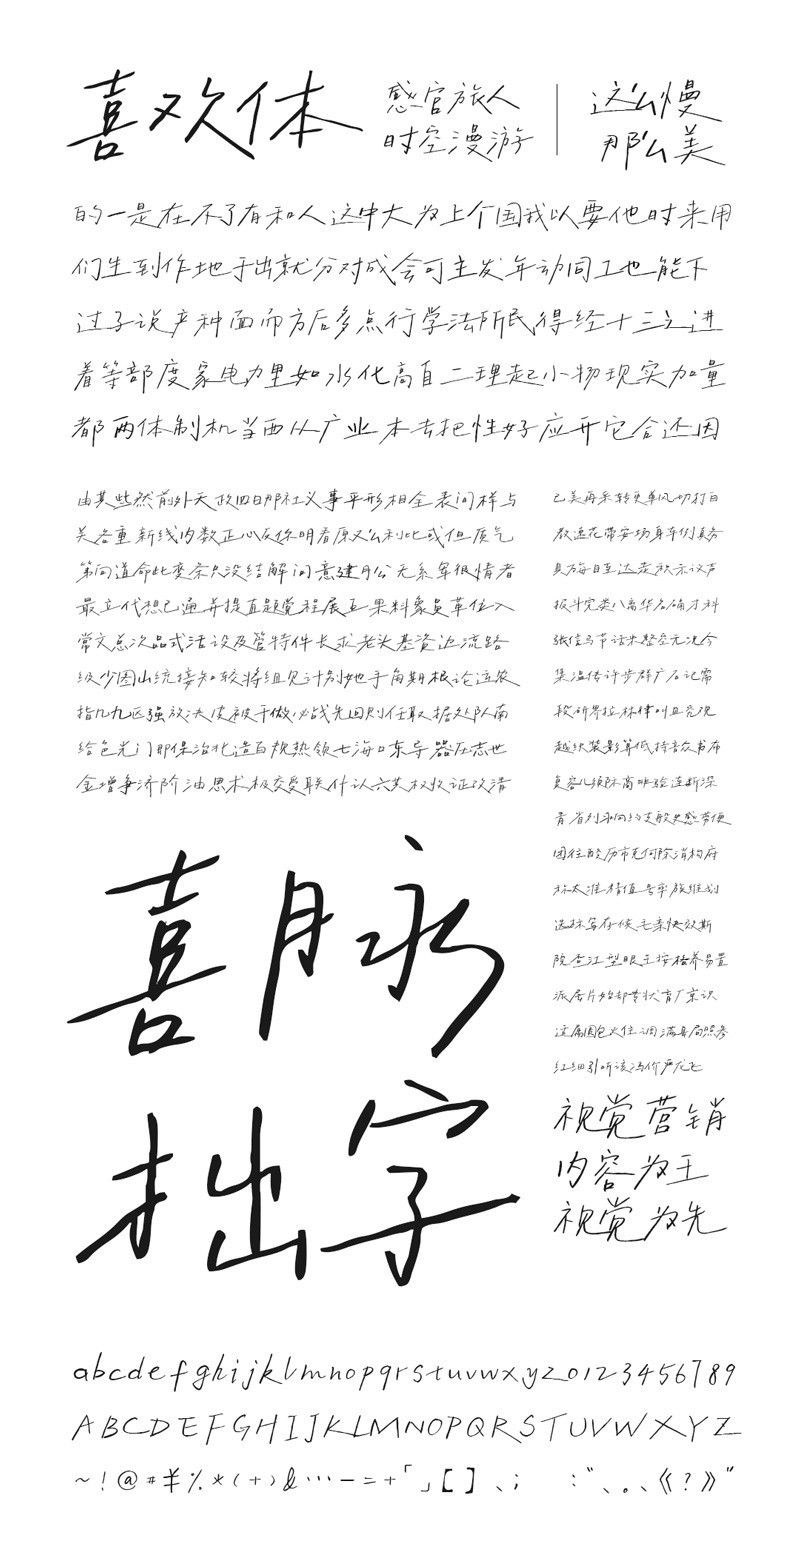 喜欢体
感官旅人
时空漫游
这么慢
那么美
的一是在不了有和人这中大为上个国我以要他时来用
们生到作地于出就分对成会可主发年动同工也能下
过子说产种面而方后多点行学法所民得经十三之进
着等部度家电力里如水化高自二理起小物现实加量
都两体制机当西从广业本去把性好应开它合还因
由其些然前外天政四日那社义事平形相全表间样与
关各重新线内数正心反你明看原又么利比或但质气
第向道命此变条只没结解问意建月公无系军很情者
最立代想已通并提直题党程展五果料象员革位入
常文总次品式活设及管特件长求老头基资边流路
级少图山统接知较将组见计别她手角期根论运农
指几九区强放决西被干做必战先回则任取据处队南
给色光门即保治北造百规热领七海口东导器压志世
金增争济阶油思术极交受联什认六共权收证改清
己美再采转更单风切打白
教速花带安场身车例真务
具万每目至达走积示议声
报斗完类八离华名确才科
张信马节话米整空元况今
集温传许步群广石记需
段研界拉林律叫且究观
越织装影算低持音众书布
复容儿须际商非验连断深
青省列
团往酸历市克何除消构府
太准精值号率族维划
选标写存候毛亲快效斯
院查江型眼王按格养易置
派层片始却专状育厂京识
适属圆包火住调满县局照参
红细引听该冯价严龙飞
喜脉
拙字
视觉营销
内容为王
视觉为先
abcdefghijklmnopqrstuvwxyz0123456789
ABCDEFGHIJKLMNOPQRSTUVWXYZ
~!@#¥%*(+)&…-=+「」【】、；：“、。、《？》”